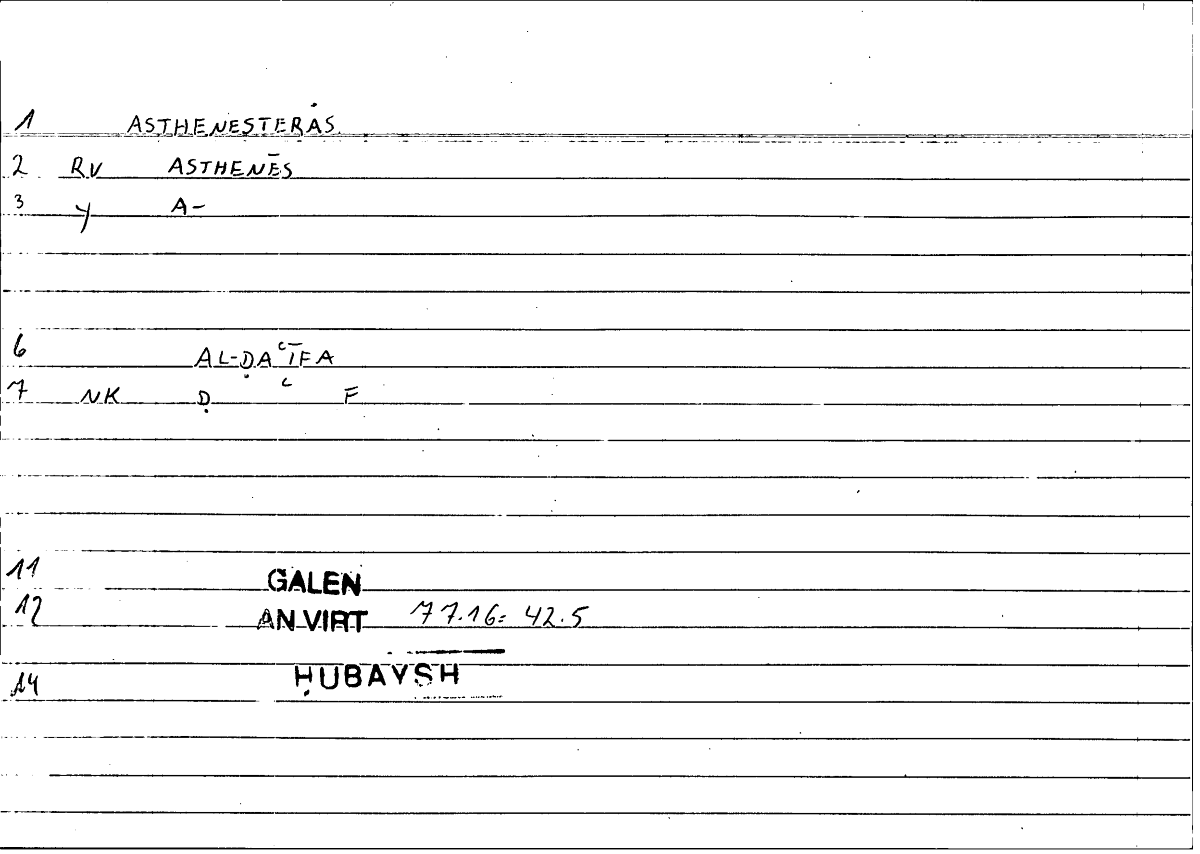 1 ASTHENESTERAS
2 RV ASTHENĒS
3 Y A-
6 AL-ḌAʿĪFA
7 NK Ḍ ʿ F
11 GALEN
12 AN VIRT 77.16= 42.5
14 ḤUBAYSH